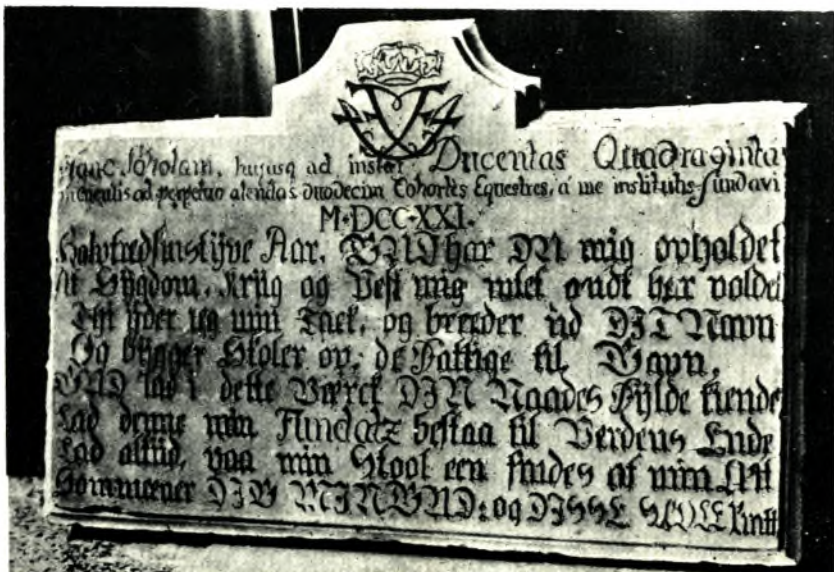 Hanc Scholam, hujusq ad instar Ducentas Quadraginta
in perpetuo alendas duodecim Cohortes Equestres, a me institutis fundavi
M·DCC·XXI.
Halvfredsindstijve Aar, GUD har DU mig opholdet
At Sygdom, Krijg og Pest mig intet ondt har voldet
Thi yder jeg min Tack, og breeder ud DIT Navn
Og bygger Skoler op, de Fattige til Gavn,
GUD lad i dette Værck DIN Naades Fylde kiende
Lad denne min Fundatz bestaa til Verdens Ende
Lad altijd, paa min Skool een findes af min Ætt
Som meener DIG MIN GUD: og DISSE SKOLE Rætt